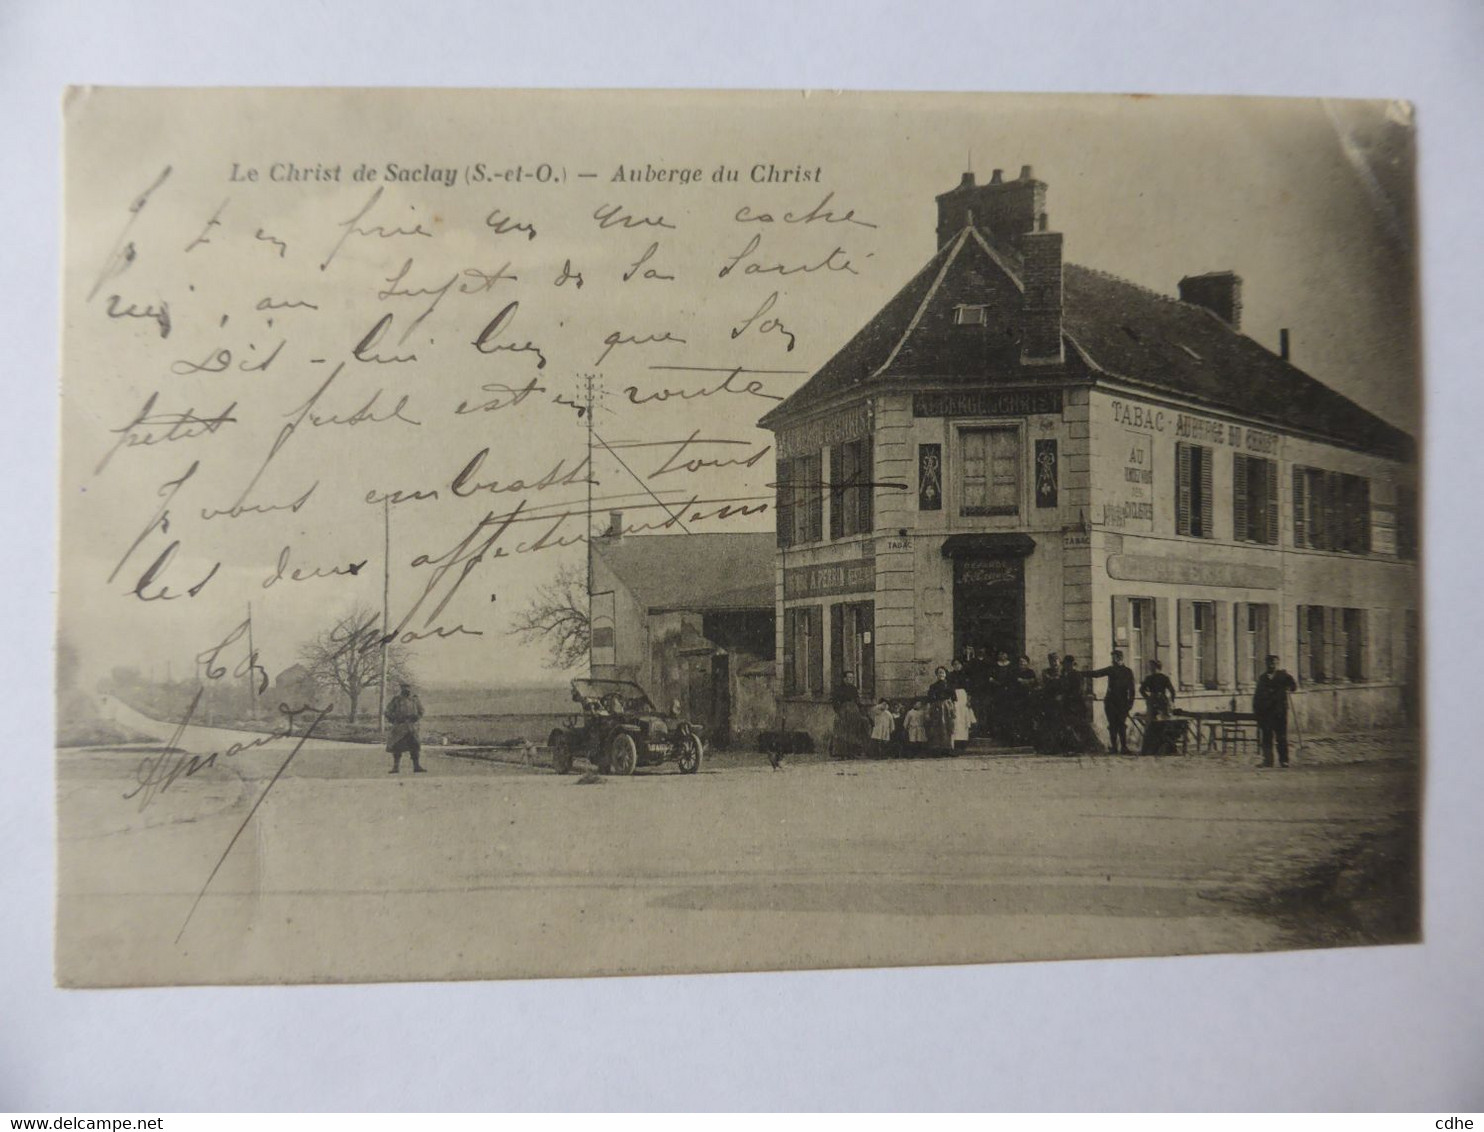 Le Christ de Saclay (S.-et-O.) — Auberge du Christ
Je t'en prie qu que cache
rien, au sujet de sa santé
Dis-lui bien que son
petit fusil est en route
Je vous embrasse tous
les deux affectueusement
Ton
Armande
AUBERGE DU CHRIST
TABAC - AUBERGE DU CHRIST
AU
RENDEZ-VOUS
DES
CYCLISTES
TABAC
TABAC
A. PERRIN
www.delcampe.net
cdhe